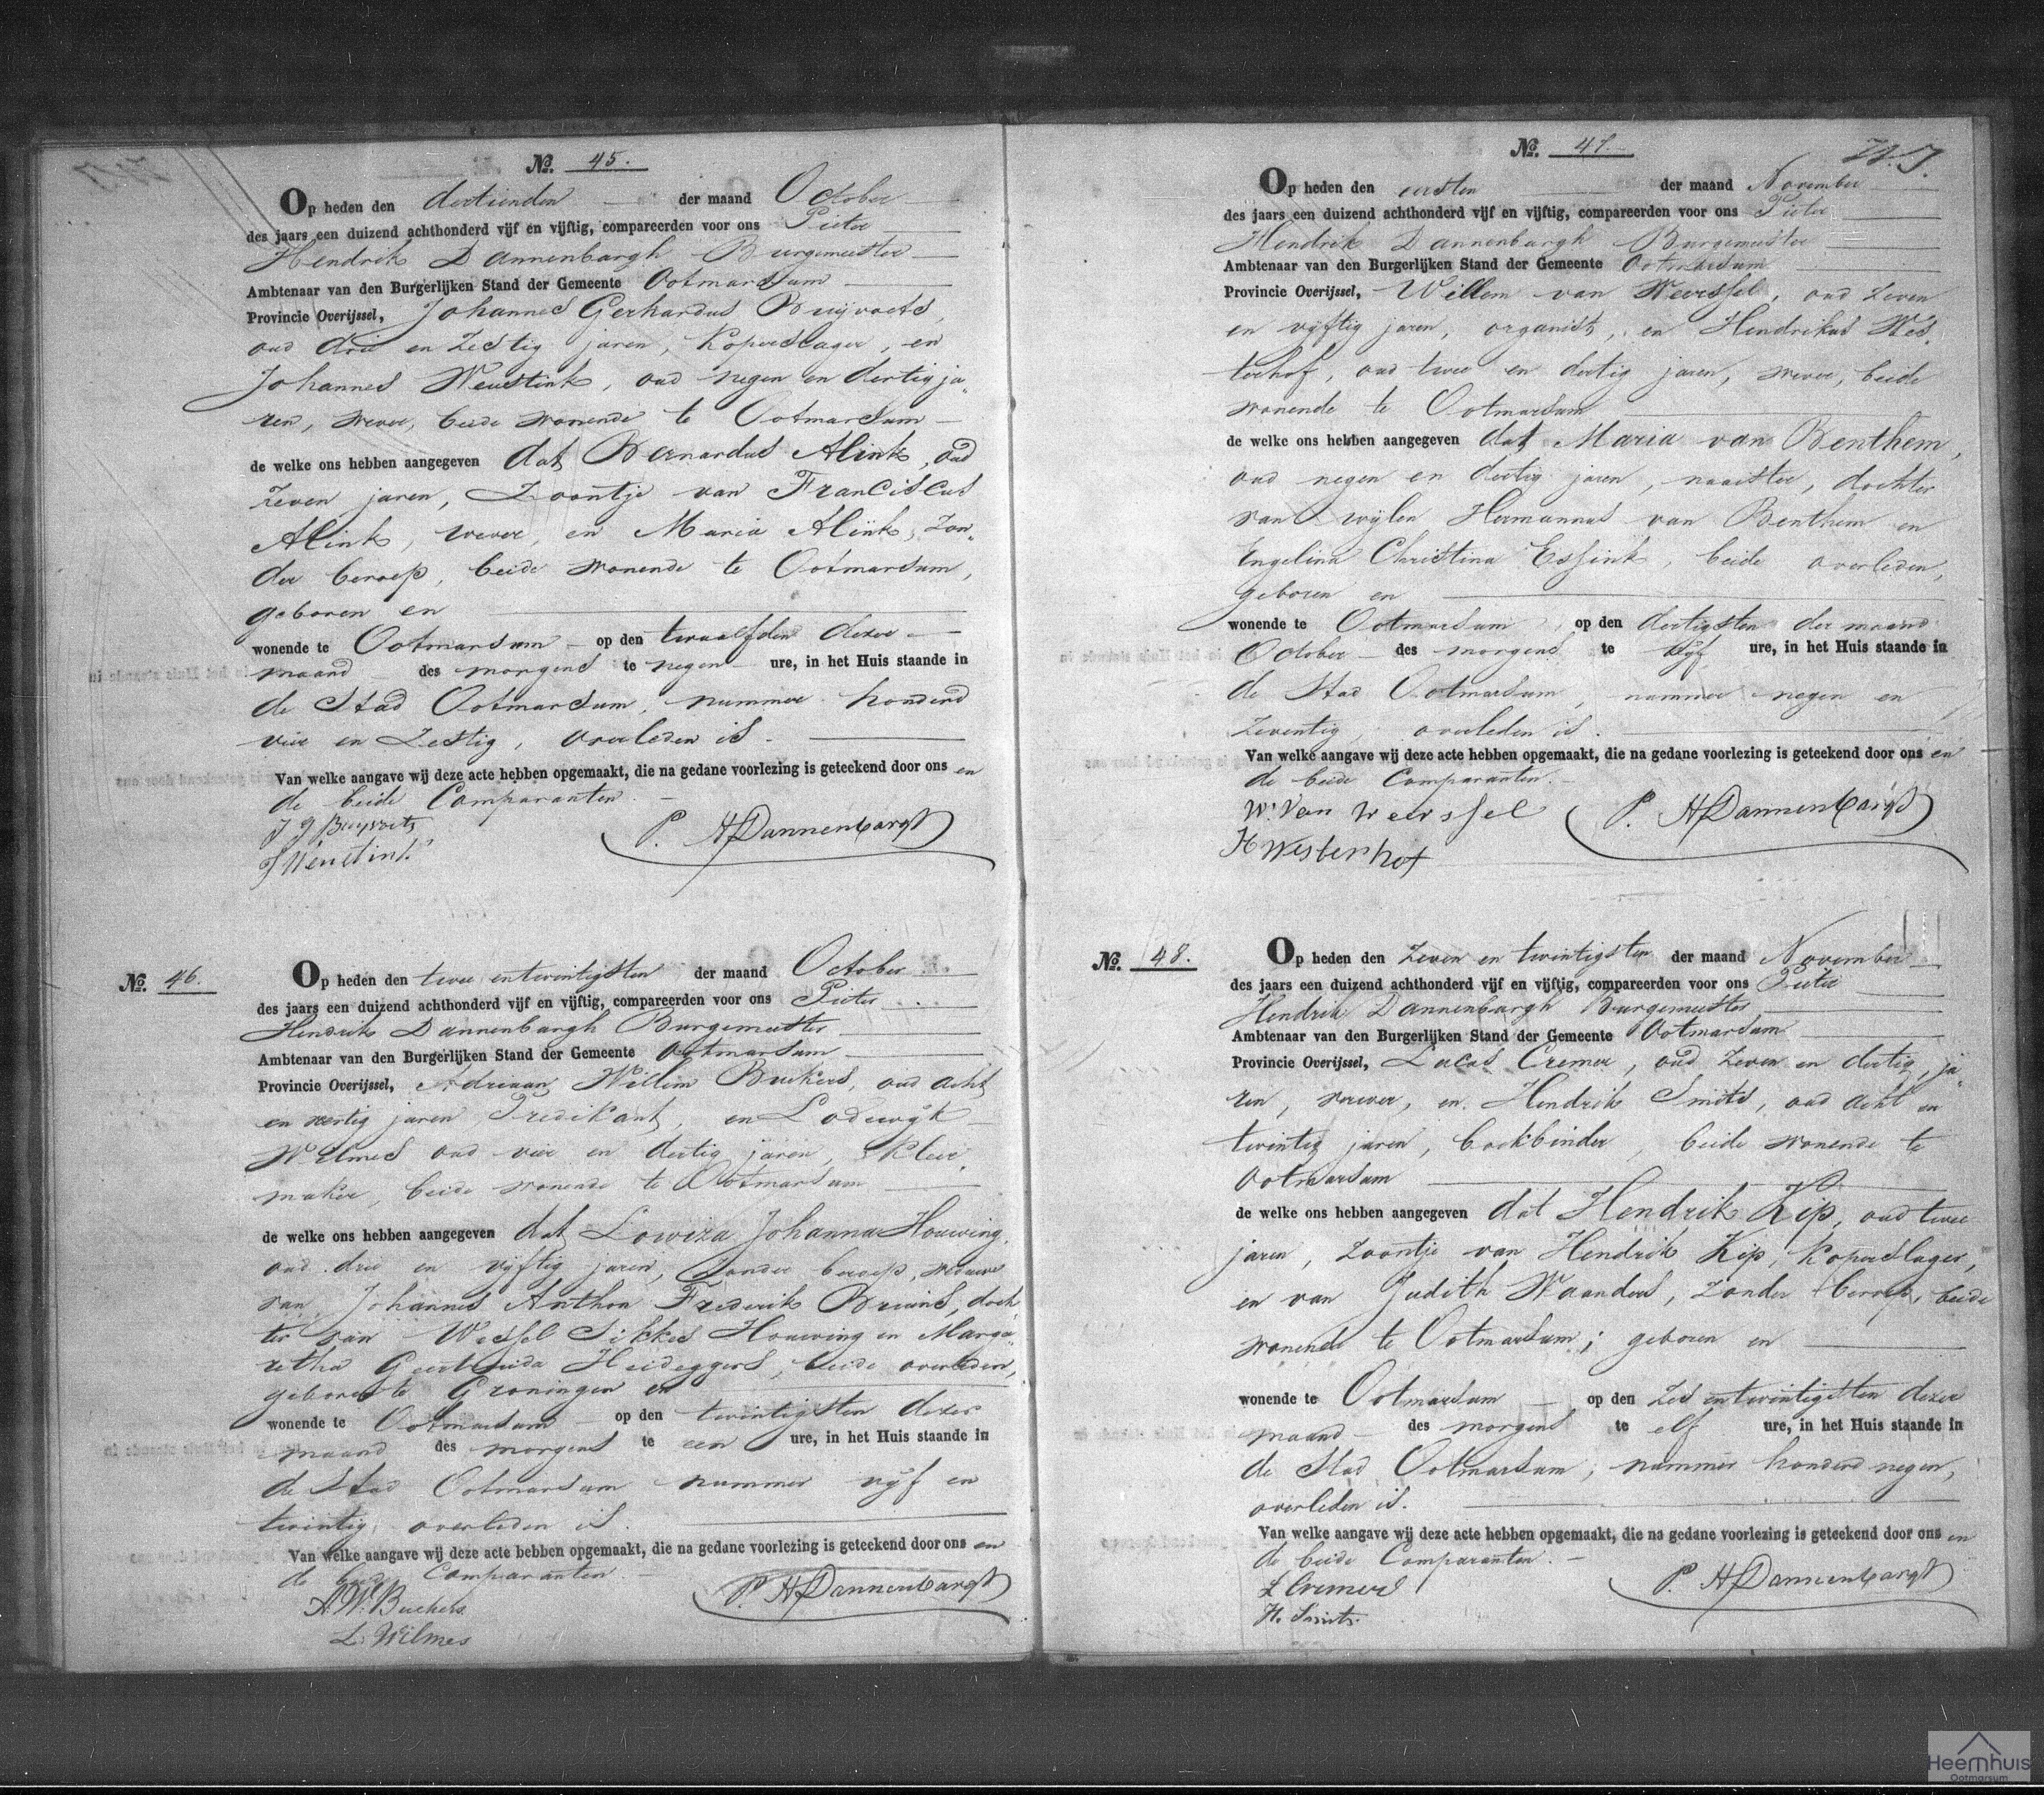 No. 45.
Op heden den dertienden der maand October
des jaars een duizend achthonderd vijf en vijftig, compareerden voor ons Pieter
Hendrik Dannenbargh Burgemeester
Ambtenaar van den Burgerlijken Stand der Gemeente Ootmarsum
Provincie Overijssel, Johannes Gerhardus Buijvoets,
oud drie en Zestig jaren, Koperslager, en
Johannes Neustink, oud negen en dertig ja-
ren, wever, beide wonende te Ootmarsum
de welke ons hebben aangegeven dat Bernardus Alink, oud
Zeven jaren, Zoontje van Franciscus
Alink, wever, en Maria Alink, Zon-
der beroep, beide wonende te Ootmarsum,
geboren en
wonende te Ootmarsum op den twaalfden dezer
maand des morgens te negen ure, in het Huis staande in
de Stad Ootmarsum, nummer honderd
vier en Zestig, overleden is.
Van welke aangave wij deze acte hebben opgemaakt, die na gedane voorlezing is geteekend door ons en
de beide Comparanten.
J G Buyvoets P. H Dannenbargh
J Neustink
No. 46.
Op heden den twee en twintigsten der maand October
des jaars een duizend achthonderd vijf en vijftig, compareerden voor ons Pieter
Hendrik Dannenbargh Burgemeester
Ambtenaar van den Burgerlijken Stand der Gemeente Ootmarsum
Provincie Overijssel, Adriaan Willem Buckers, oud acht
en veertig jaren Predikant, en Lodewijk
Wilmes oud vier en dertig jaren, Kleer-
maker, beide wonende te Ootmarsum
de welke ons hebben aangegeven dat Lowiza Johanna Houwing,
oud drie en vijftig jaren, Zonder beroep, weduwe
van Johannes Anthon Frederik Bruins, doch
ter van Wessel Sikkes Houwing en Marga-
retha Geertruida Heideggers, beide overleden,
geboren te Groningen en
wonende te Ootmarsum op den twintigsten dezer
maand des morgens te een ure, in het Huis staande in
de Stad Ootmarsum nummer vijf en
twintig, overleden is.
Van welke aangave wij deze acte hebben opgemaakt, die na gedane voorlezing is geteekend door ons en
de beide Comparanten.
A. W. Buckers P. H Dannenbargh
L. Wilmes
No. 47.
Op heden den eersten der maand November
des jaars een duizend achthonderd vijf en vijftig, compareerden voor ons Pieter
Hendrik Dannenbargh Burgemeester
Ambtenaar van den Burgerlijken Stand der Gemeente Ootmarsum
Provincie Overijssel, Willem van Weerssel, oud Zeven
en vijftig jaren, organist, en Hendrikus Wes-
terhof, oud twee en dertig jaren, wever, beide
wonende te Ootmarsum
de welke ons hebben aangegeven dat Maria van Benthem,
oud negen en dertig jaren, naaister, dochter
van wijlen Hermannus van Benthem en
Engelina Christina Essink, beide overleden,
geboren en
wonende te Ootmarsum, op den dertigsten der maand
October des morgens te vijf ure, in het Huis staande in
de Stad Ootmarsum, nummer negen en
Zeventig, overleden is.
Van welke aangave wij deze acte hebben opgemaakt, die na gedane voorlezing is geteekend door ons en
de beide Comparanten.
W. Van Weerssel P. H Dannenbargh
H Westerhof
No. 48.
Op heden den Zeven en twintigsten der maand November
des jaars een duizend achthonderd vijf en vijftig, compareerden voor ons Pieter
Hendrik Dannenbargh Burgemeester
Ambtenaar van den Burgerlijken Stand der Gemeente Ootmarsum
Provincie Overijssel, Lucas Cremer, oud Zeven en dertig, ja-
ren, wever, en Hendrik Smits, oud acht en
twintig jaren, boekbinder, beide wonende te
Ootmarsum
de welke ons hebben aangegeven dat Hendrik Kip, oud twee
jaren, Zoontje van Hendrik Kip, Koperslager,
en van Judith Waanders, Zonder beroep, beide
wonende te Ootmarsum; geboren en
wonende te Ootmarsum op den Zes en twintigsten dezer
maand des morgens te elf ure, in het Huis staande in
de Stad Ootmarsum, nummer honderd negen,
overleden is.
Van welke aangave wij deze acte hebben opgemaakt, die na gedane voorlezing is geteekend door ons en
de beide Comparanten.
L Cremers P. H Dannenbargh
H. Smits
Heemhuis
Ootmarsum